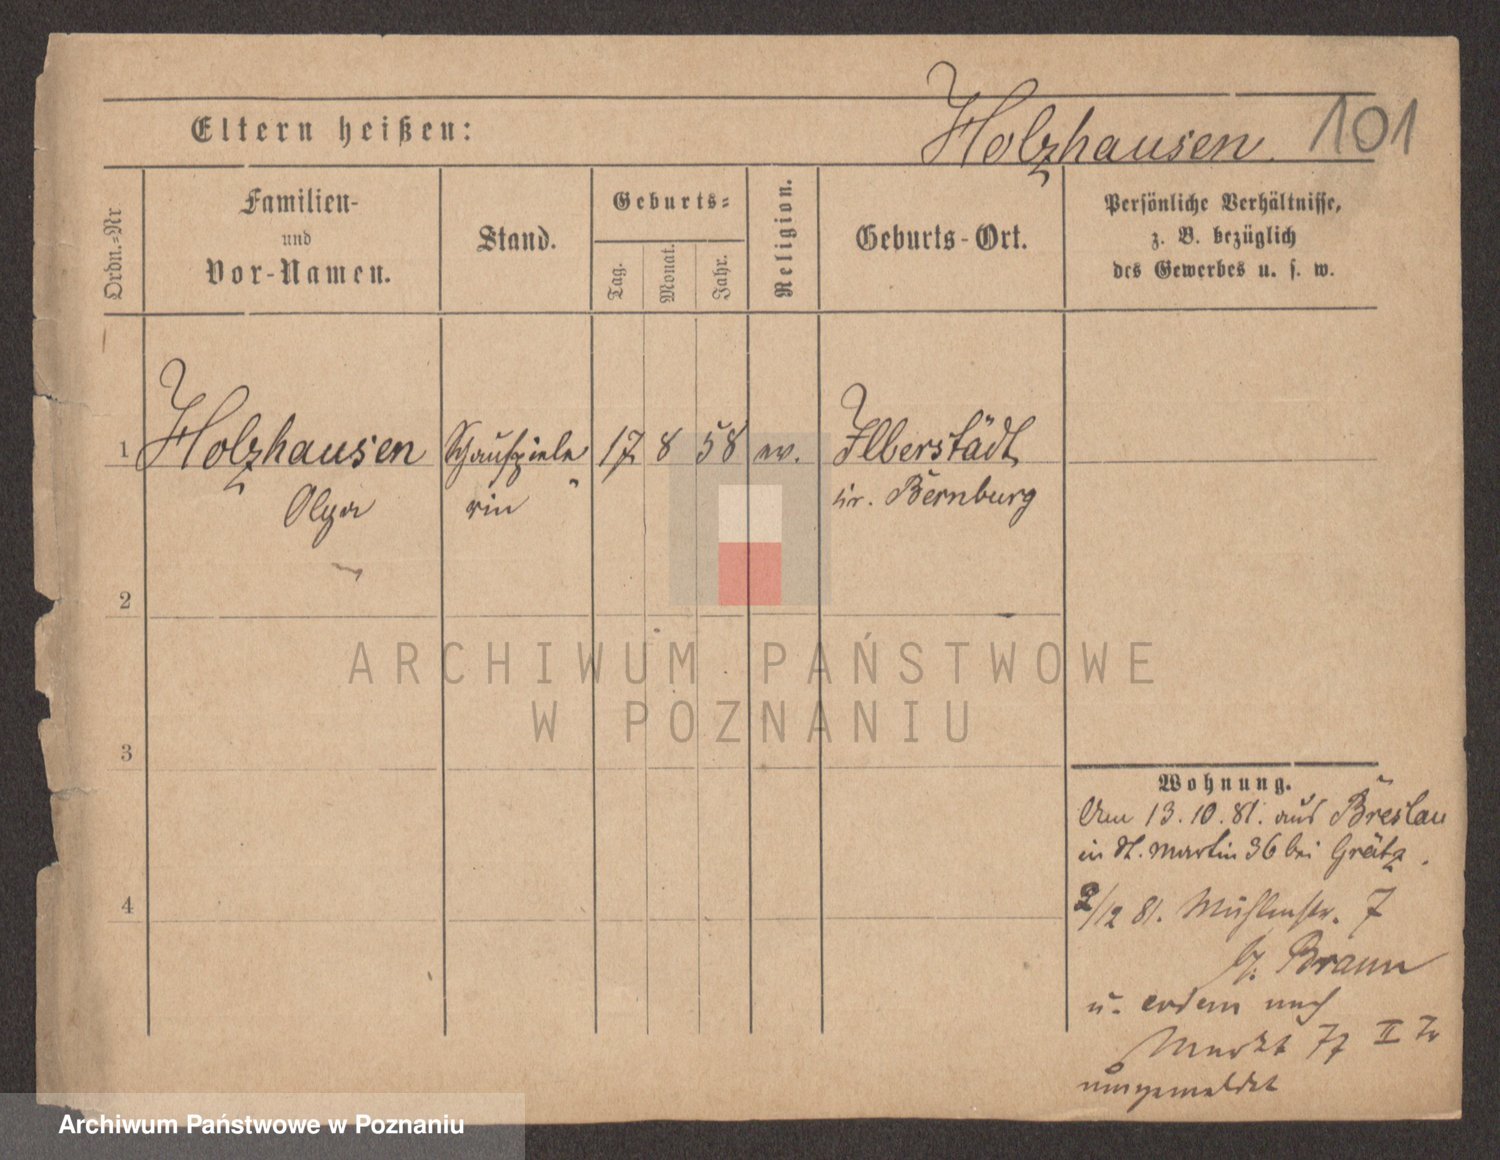 Holzhausen. 101
Eltern heißen:
Ordn.=Nr
Familien-
und
Vor-Namen.
Stand.
Geburts=
Tag.
Monat.
Jahr.
Religion.
Geburts-Ort.
Persönliche Verhältnisse,
z. B. bezüglich
des Gewerbes u. s. w.
1 Holzhausen Schauspiele 17 8 58 ev. Ilberstädt
Olga rin Kr. Bernburg
2
3
4
ARCHIWUM PAŃSTWOWE
W POZNANIU
Wohnung.
Am 13.10.81. aus Breslau
in St. Martin 36 bei Grätz.
2/12 81. Mühlenstr. 7
b. Braun
u. nach
Markt 77 II
umgemeldet
Archiwum Państwowe w Poznaniu